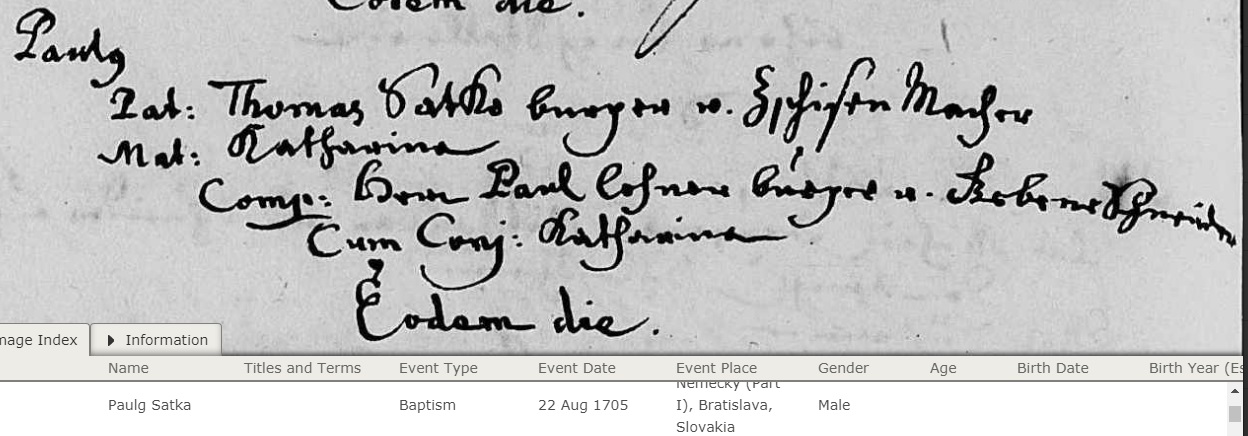 Eodem die.
Paulg
Pat: Thomas Satko burger v. Zschisen Macher
Mat: Katharina
Comp: Herr Paul Lehner burger v. Schneider
Cum Conj: Katharina
Eodem die.
mage Index
Information
Name Titles and Terms Event Type Event Date Event Place Gender Age Birth Date Birth Year (Es
Nemecky (Part
Paulg Satka Baptism 22 Aug 1705 I), Bratislava, Male
Slovakia